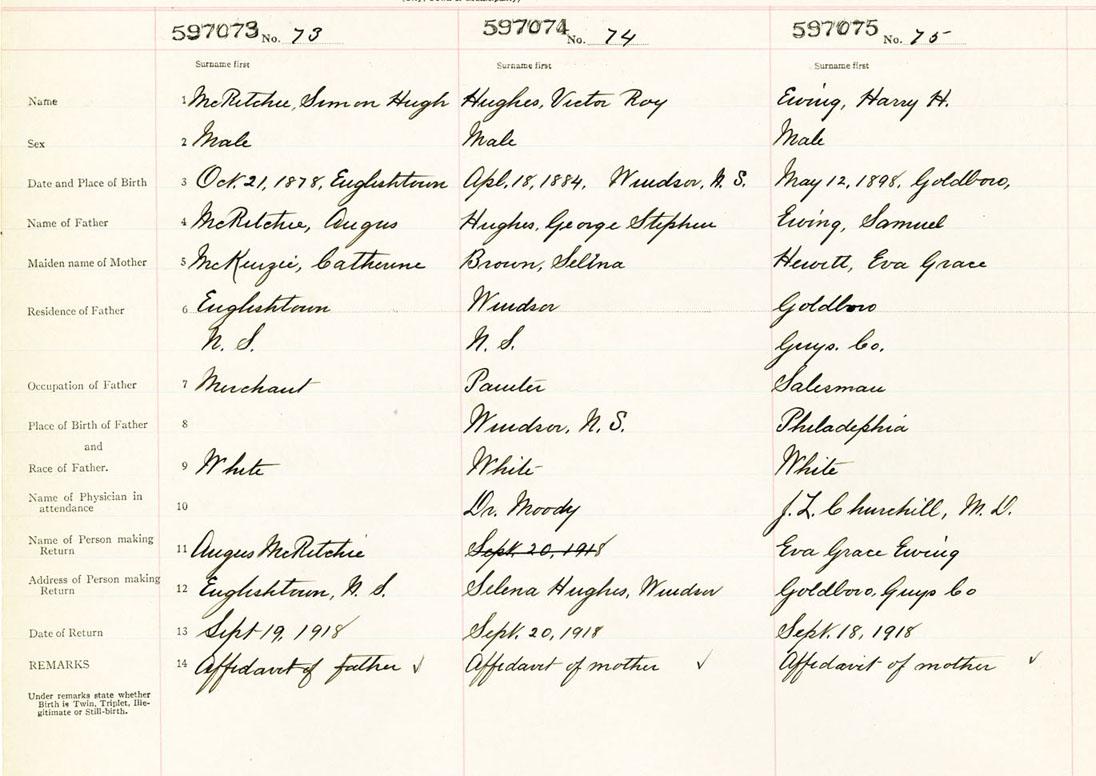 597073 No. 73 597074 No. 74 597075 No. 75
Surname first Surname first Surname first
Name 1 McRitchie, Simon Hugh Hughes, Victor Roy Ewing, Harry H.
Sex 2 Male Male Male
Date and Place of Birth 3 Oct. 21, 1878, Englishtown Apl. 18, 1884, Windsor, N. S. May 12, 1898, Goldboro,
Name of Father 4 McRitchie, Angus Hughes, George Stephen Ewing, Samuel
Maiden name of Mother 5 McKenzie, Catherine Brown, Selina Hewitt, Eva Grace
Residence of Father 6 Englishtown Windsor Goldboro
N. S. N. S. Guys. Co.
Occupation of Father 7 Merchant Painter Salesman
Place of Birth of Father 8 Windsor, N. S. Philadephia
and
Race of Father. 9 White White White
Name of Physician in
attendance 10 Dr. Moody J. L. Churchill, M. D.
Name of Person making
Return 11 Angus McRitchie Sept. 20, 1918 Eva Grace Ewing
Address of Person making
Return 12 Englishtown, N. S. Selena Hughes, Windsor Goldboro, Guys Co
Date of Return 13 Sept 19, 1918 Sept. 20, 1918 Sept. 18, 1918
REMARKS 14 Affidavit of father ✓ Affidavit of mother ✓ Affidavit of mother ✓
Under remarks state whether
Birth is Twin, Triplet, Ille-
gitimate or Still-birth.